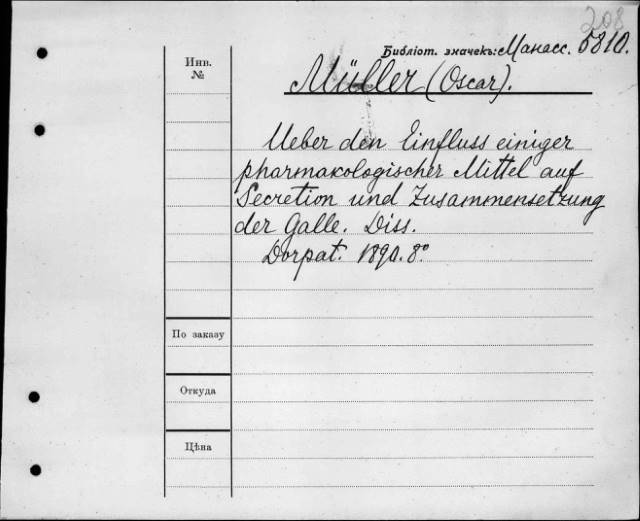 208
Библіот. значекъ: Манасс. 5810.
Инв.
№
Müller (Oscar).
Ueber den Einfluss einiger
pharmakologischer Mittel auf
Secretion und Zusammensetzung
der Galle. Diss.
Dorpat. 1890. 8°
По заказу
Откуда
Цѣна